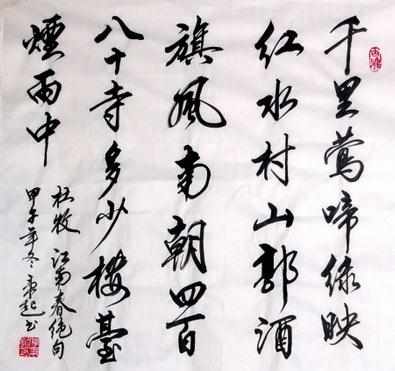 千里莺啼绿映
红水村山郭酒
旗風南朝四百
八十寺多少楼臺
煙雨中
杜牧 江南春绝句
甲午年冬 书